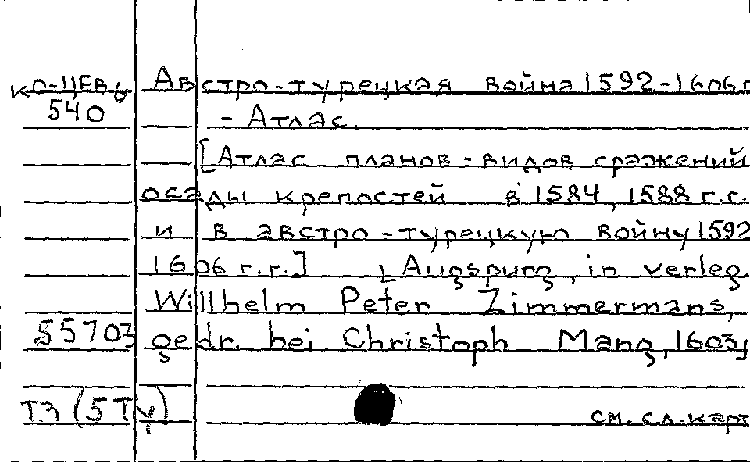 КО-ЦЕВъ Австро-турецкая война 1592-1606 г
540 - Атлас.
[Атлас планов-видов сражений
осады крепостей в 1584, 1588 г.г.
и в австро-турецкую войну 1592
1606 г.г.] Augspurg, in verleg
Willhelm Peter Zimmermans,
55703 gedr. bei Christoph Mang, 1603,
ТЗ (5ТУ) см. сл. карт